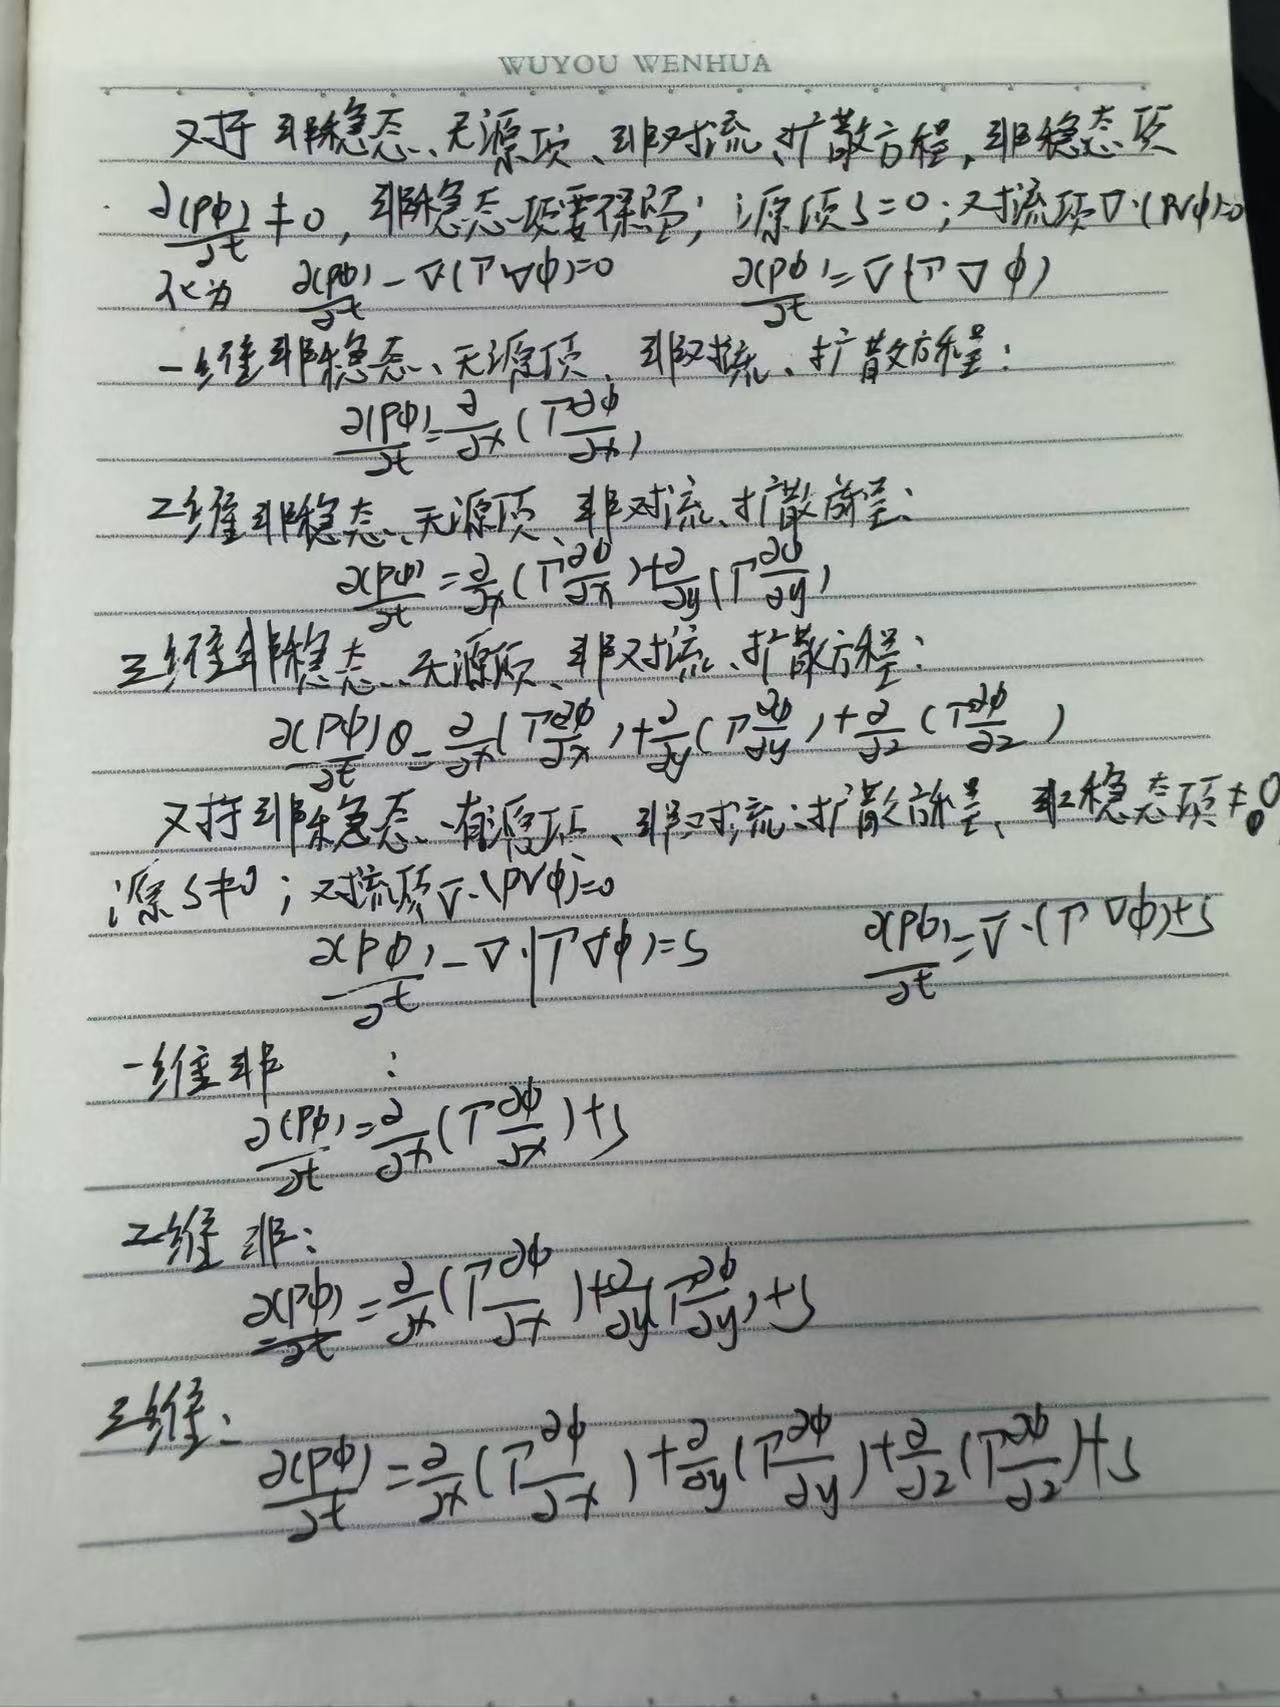 WUYOU WENHUA
对于非稳态、无源项、非对流、扩散方程，非稳态项
∂(ρφ)/∂t ≠0，非稳态项要保留；源项S=0；对流项∇·(ρVφ)=0
化为 ∂(ρφ)/∂t - ∇·(Γ∇φ)=0 ∂(ρφ)/∂t = ∇·(Γ∇φ)
一维非稳态、无源项、非对流、扩散方程：
∂(ρφ)/∂t = ∂/∂x(Γ∂φ/∂x)
二维非稳态、无源项、非对流、扩散方程：
∂(ρφ)/∂t = ∂/∂x(Γ∂φ/∂x)+∂/∂y(Γ∂φ/∂y)
三维非稳态、无源项、非对流、扩散方程：
∂(ρφ)/∂t = ∂/∂x(Γ∂φ/∂x)+∂/∂y(Γ∂φ/∂y)+∂/∂z(Γ∂φ/∂z)
对于非稳态、有源项、非对流、扩散方程、非稳态项≠0
源S≠0；对流项∇·(ρVφ)=0
∂(ρφ)/∂t - ∇·(Γ∇φ)=S ∂(ρφ)/∂t = ∇·(Γ∇φ)+S
一维非 ：
∂(ρφ)/∂t = ∂/∂x(Γ∂φ/∂x)+S
二维 非：
∂(ρφ)/∂t = ∂/∂x(Γ∂φ/∂x)+∂/∂y(Γ∂φ/∂y)+S
三维：
∂(ρφ)/∂t = ∂/∂x(Γ∂φ/∂x)+∂/∂y(Γ∂φ/∂y)+∂/∂z(Γ∂φ/∂z)+S